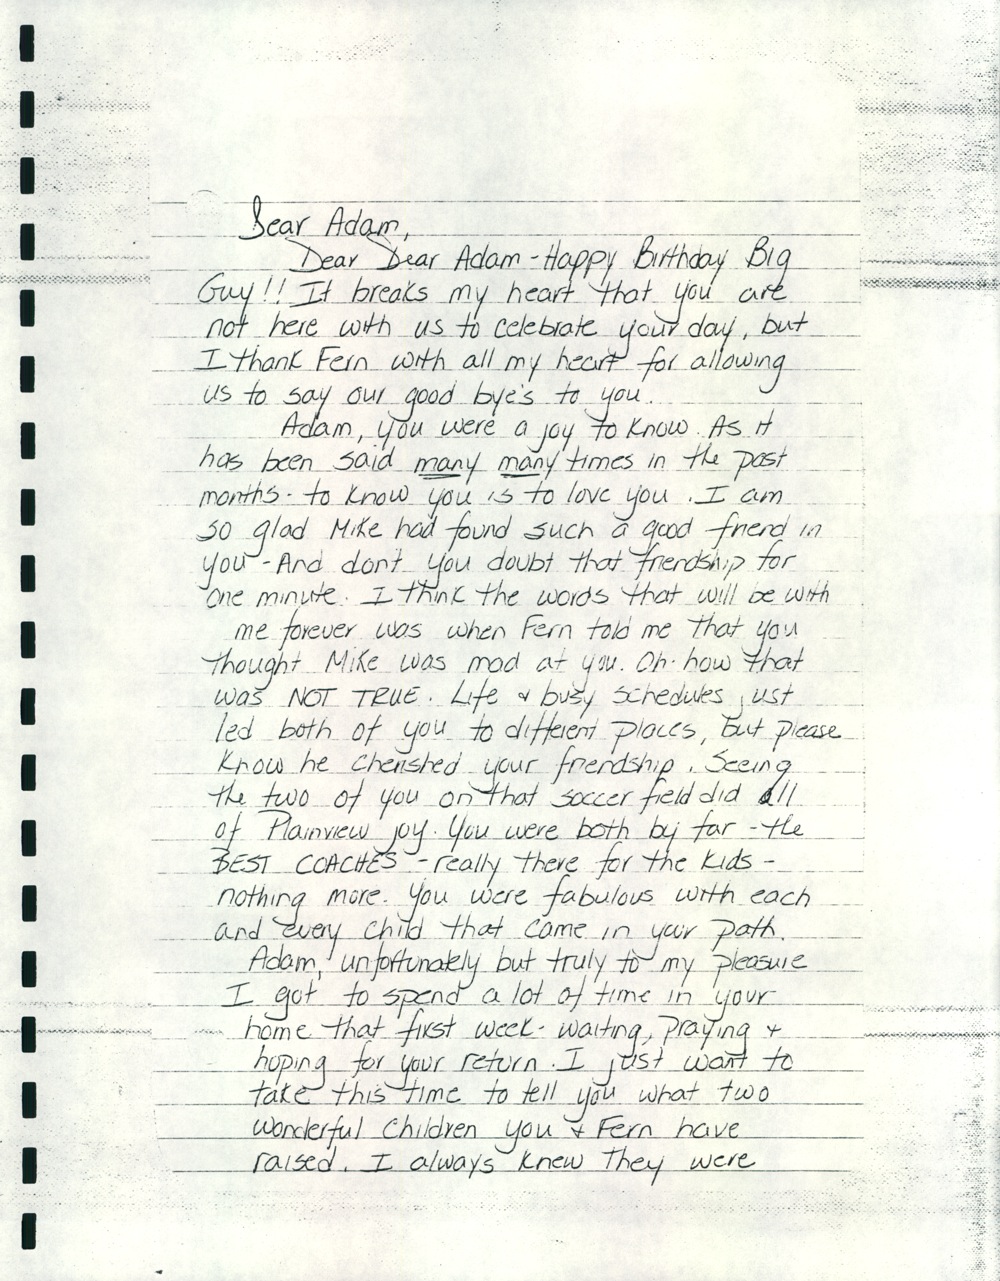 Dear Adam,
Dear Dear Adam - Happy Birthday Big
Guy!! It breaks my heart that you are
not here with us to celebrate your day, but
I thank Fern with all my heart for allowing
us to say our good bye's to you.
Adam, you were a joy to know. As it
has been said many many times in the past
months - to know you is to love you. I am
so glad Mike had found such a good friend in
you - And don't you doubt that friendship for
one minute. I think the words that will be with
me forever was when Fern told me that you
thought Mike was mad at you. Oh how that
was NOT TRUE. Life & busy schedules just
led both of you to different places, but please
know he cherished your friendship. Seeing
the two of you on that soccer field did all
of Plainview joy. You were both by far - the
BEST COACHES - really there for the kids -
nothing more. You were fabulous with each
and every child that came in your path.
Adam, unfortunately but truly to my pleasure
I got to spend a lot of time in your
home that first week - waiting, praying &
hoping for your return. I just want to
take this time to tell you what two
wonderful children you & Fern have
raised. I always knew they were